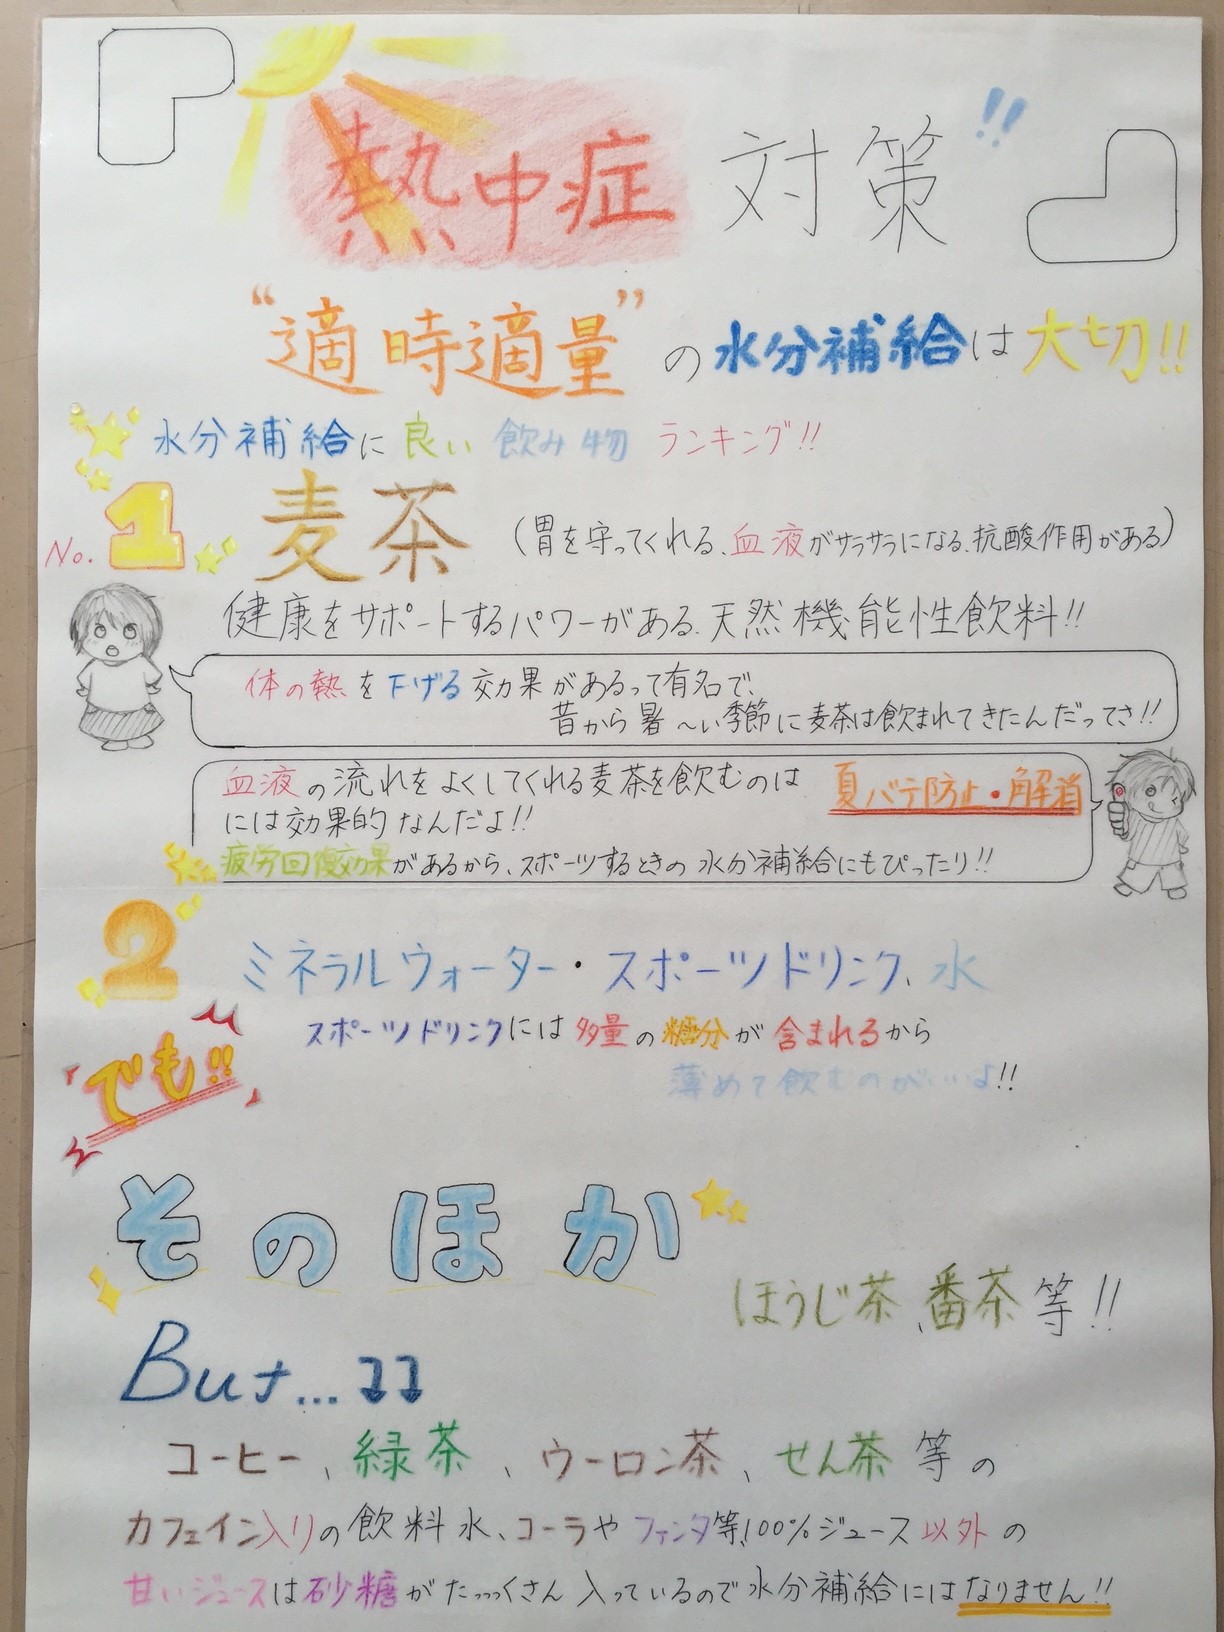 熱中症対策!!
“適時適量”の水分補給は大切!!
水分補給に良い飲み物ランキング!!
No.1 麦茶 (胃を守ってくれる、血液がサラサラになる、抗酸作用がある)
健康をサポートするパワーがある、天然機能性飲料!!
体の熱を下げる効果があるって有名で、
昔から暑〜い季節に麦茶は飲まれてきたんだってさ!!
血液の流れをよくしてくれる麦茶を飲むのは 夏バテ防止・解消
には効果的なんだよ!!
疲労回復効果があるから、スポーツするときの水分補給にもぴったり!!
2 ミネラルウォーター・スポーツドリンク、水
でも!!
スポーツドリンクには多量の糖分が含まれるから
薄めて飲むのがいいよ!!
そのほか
ほうじ茶、番茶等!!
But...⤵⤵
コーヒー、緑茶、ウーロン茶、せん茶等の
カフェイン入りの飲料水、コーラやファンタ等、100%ジュース以外の
甘いジュースは砂糖がたっっっくさん入っているので水分補給にはなりません!!